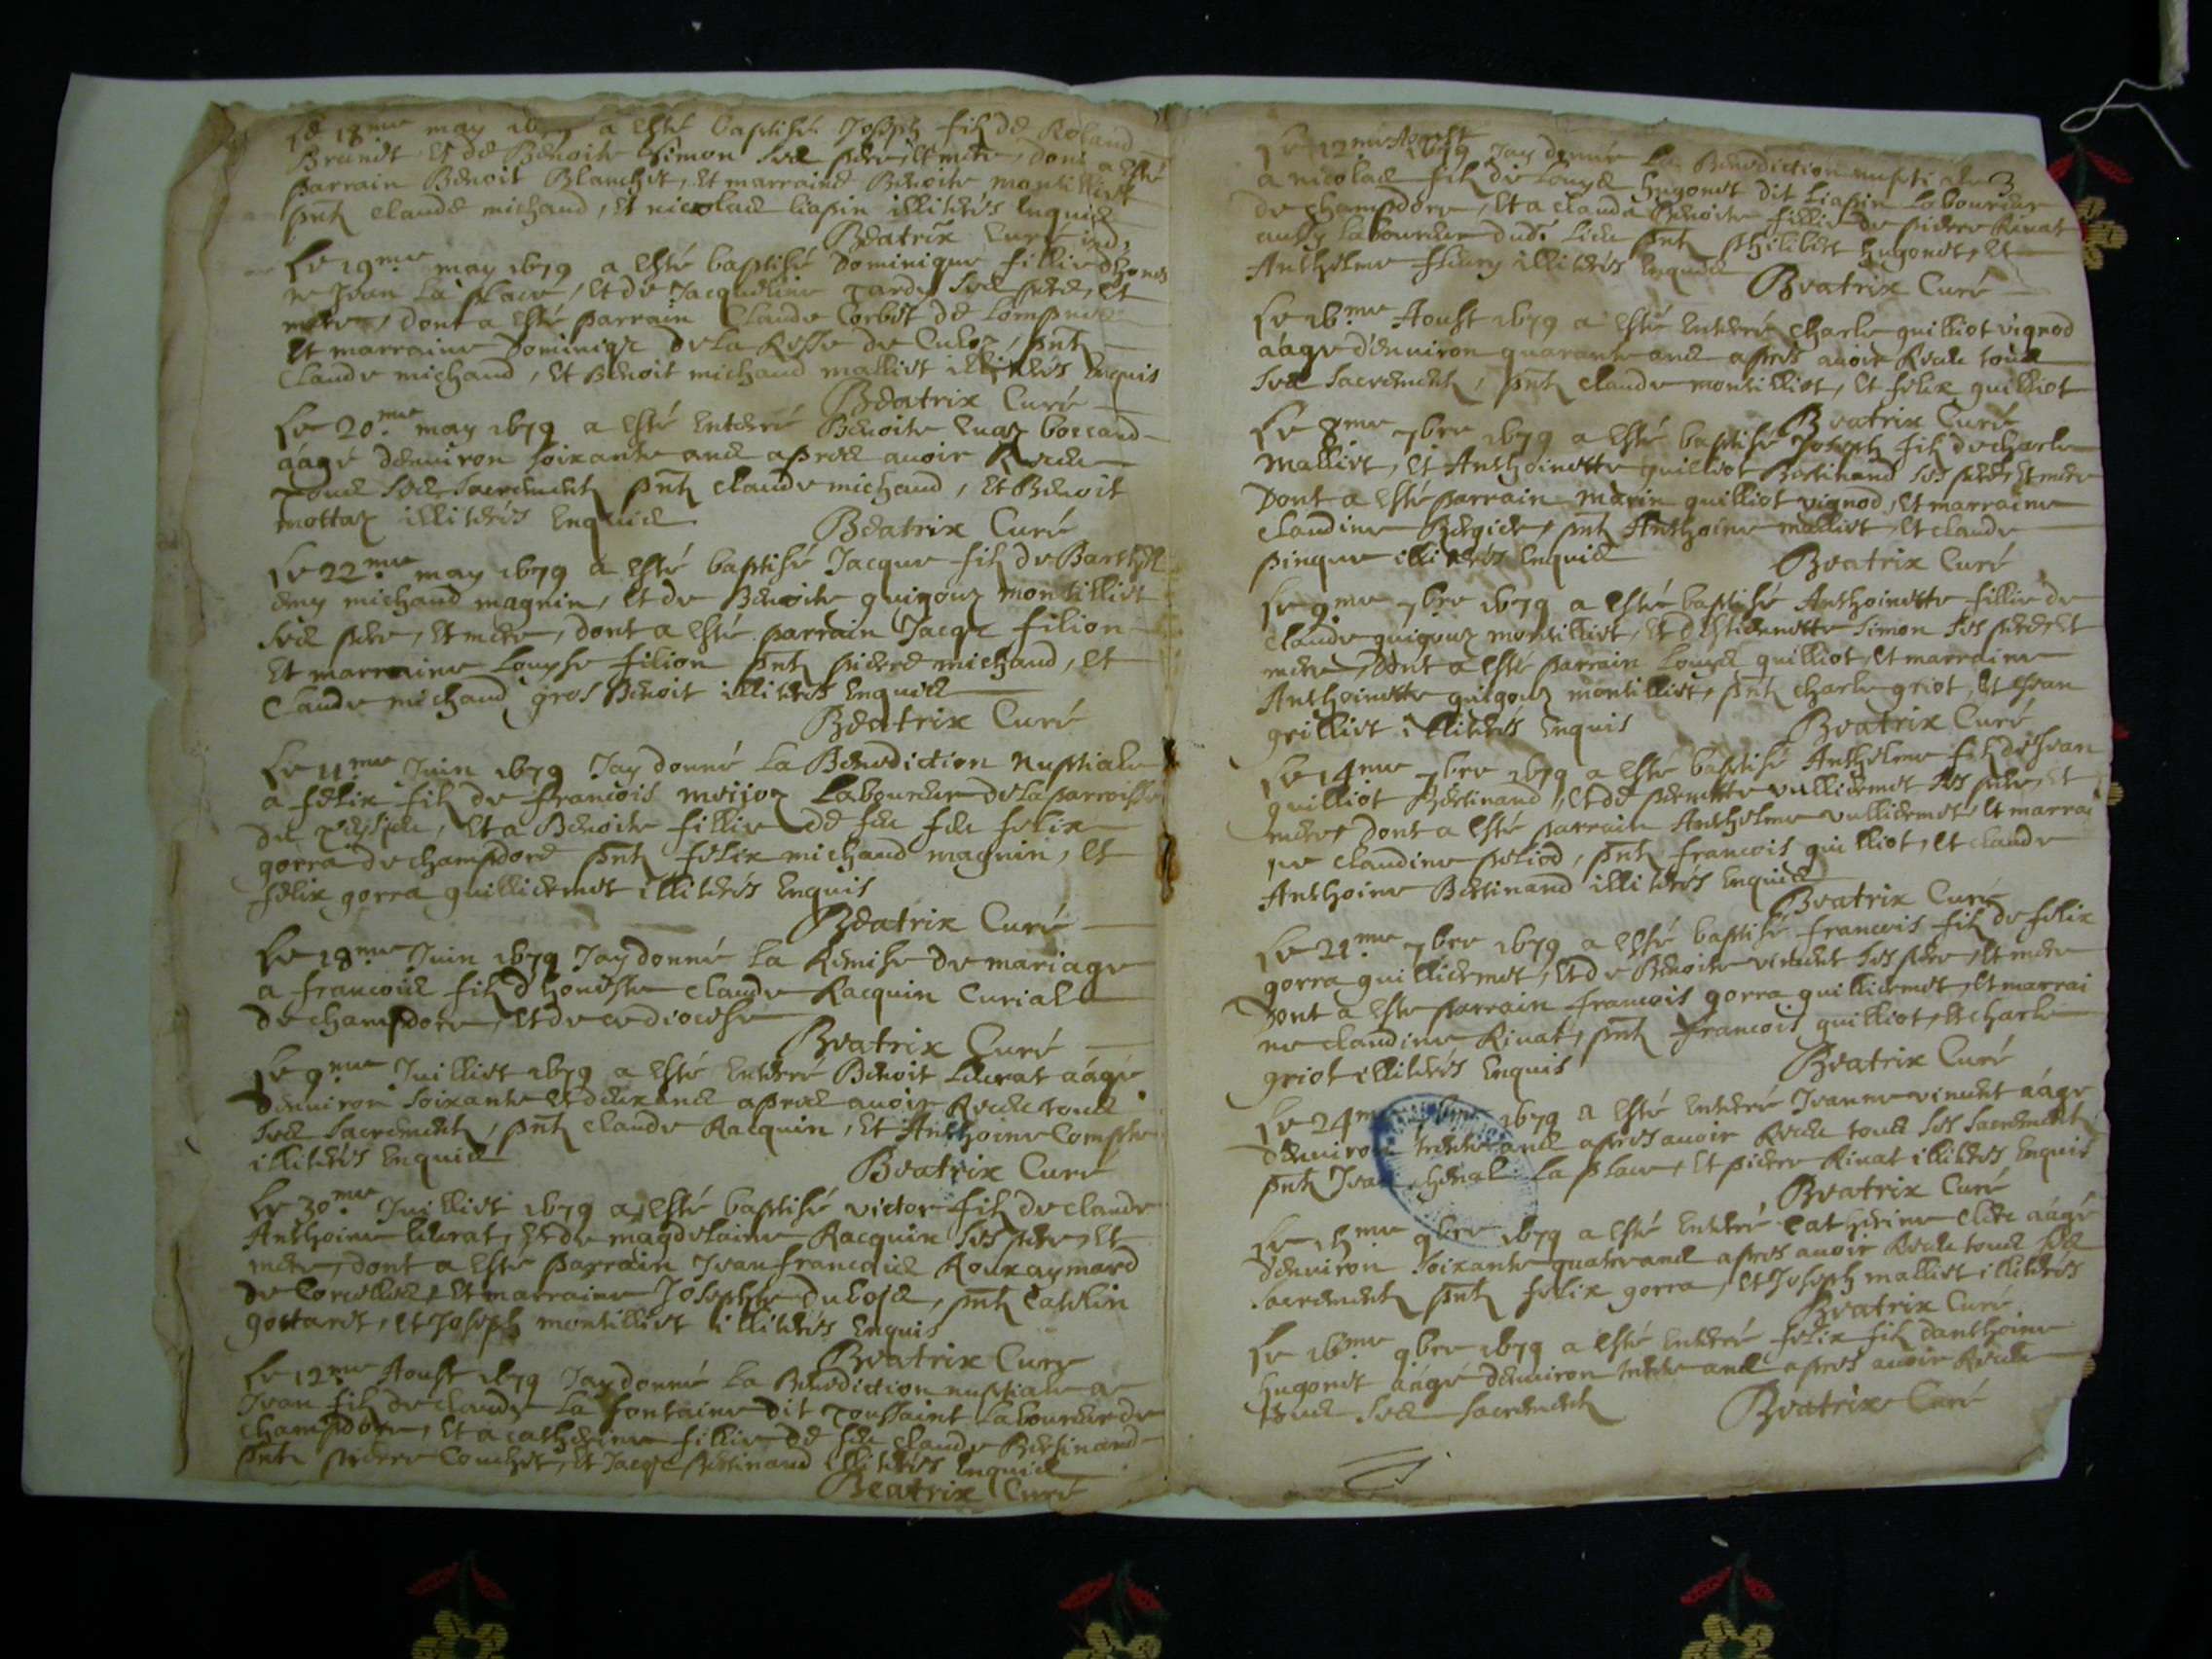 Le 18me may 1679 a esté baptisé Joseph filz de Roland
Brandt et de Benoite Simon ses pere, et mere, dont a esté
parrain Benoit Blanchet, et marraine Benoite montilliet
pnts claude michaud, et nicolas liapin illiterés enquis
Beatrix Curé
Le 19me may 1679 a esté baptisé Dominique fillie dhones
te Jean La place, et de Jacqueline pardy ses pere, et
mere, dont a esté parrain Claude Corbet de Lompnes
et marraine Dominiqe De La Resse de Culoz, pnts
Claude michaud, et Benoit michaud malliet illiterés Enquis
Beatrix Curé
Le 20me may 1679 a esté enterré Benoite luaz boccand
aágé denviron soixante ans apres avoir Receu
Tous ses sacrements pnts claude michaud, et Benoit
mottaz illiterés Enquis
Beatrix Curé
Le 22me may 1679 a esté baptisé Jacque filz de Barthel
emy michaud magnin, et de Benoite guigouz montilliet
ses pere, et mere, dont a esté parrain Jacqe filion
et marraine Louyse filion pnts pierre michaud, et
Claude michaud gros Benoit illiterés Enquis
Beatrix Curé
Le 11me Juin 1679 Jay donné La Benediction Nuptiale
a felix filz de francois meijoz Laboureur de La parroisse
de, et a Benoite fillie de feu feu felix
gorra de champdore pnts felix michaud magnin, et
felix gorra guilliermet illiterés Enquis
Beatrix Curé
Le 18me Juin 1679 Jay donné La Remise de mariage
a francois filz dhoneste claude Racquin Curial
de champdore, et de ce diocese
Beatrix Curé
Le 9me Juilliet 1679 a esté Enterré Benoit Luerat aágé
denviron soixante et deux ans apres avoir Receu tous
ses sacrements, pnts claude Racquin, et Anthoine Compte
illiterés Enquis
Beatrix Curé
Le 30me Juilliet 1679 a esté baptisé victor filz de claude
Anthoine luerat, et de magdelaine Racquin ses pere, et
mere, dont a esté parrain Jean francois Rouxaymard
de Corcelles, et marraine Josephte Duboje, pnts Catelin
gottaret, et Joseph montilliet illiterés Enquis
Beatrix Curé
Le 12me Aoust 1679 Jay donné La Benediction nuptiale a
Jean filz de claude La fontaine dit Toussaint Laboureur de
champdore, et a catherine fillie de feu claude Bertinand
pnts pierre Couchet, et Jacqe Bertinand illiterés Enquis
Beatrix Curé
Le 12me Aoust 1679 Jay donné La Benediction nupti ale
a nicolas filz de Louys hugonet dit Liapin Laboureur
de champdore, et a claude Benoite fillie de pierre Rivat
aussy Laboureur dudt Lieu pnts philibert hugonet, et
Anthelme fleury illiterés Enquis
Beatrix Curé
Le 16me Aoust 1679 a esté Enterré charle guilliot vignod
aágé denviron quarante ans apres avoir Receu tous
ses sacrements, pnts claude montilliet, et felix guilliot
Beatrix Curé
Le 8me 7bre 1679 a esté baptisé Joseph filz de charle
Malliet, et Anthoinette guilliot Bertinand ses pere, et mere
Dont a esté parrain marin guilliot vignod, et marraine
claudine, pnts Anthoine malliet, et claude
pingue illiterés Enquis
Beatrix Curé
Le 9me 7bre 1679 a esté baptisé Anthoinette fillie de
Claude guigouz montilliet, et dEstiennette Simon ses pere, et
mere, dont a esté parrain Louys guilliot, et marraine
Anthoinette guigouz montilliet, pnts charle griot, et Jean
grilliet illiterés Enquis
Beatrix Curé
Le 14me 7bre 1679 a esté baptisé Anthelme filz de Jean
guilliot Bertinand, et de pernette vulliermet ses pere, et
mere, dont a esté parrain Anthelme vulliermet et marrai
ne claudine peliod, pnts francois guilliot, et claude
Anthoine Bertinand illiterés Enquis
Beatrix Curé
Le 21me 7bre 1679 a esté baptisé francois filz de felix
gorra guilliermet, et de Benoite vincent ses pere, et mere
Dont a esté parrain francois gorra guilliermet, et marrai
ne claudine Rivat, pnts francois guilliot, et charle
griot illiterés Enquis
Beatrix Curé
Le 24me 1679 a esté Enterré Jeanne vincent aágé
denviron trente ans apres avoir Receu tous ses sacrements
pnts Jean chenal La place, et pierre Rivat illiterés Enquis
Beatrix Curé
Le 15me 9bre 1679 a esté Enterré Catherine clerc aágé
denviron soixante quatre ans apres avoir Receu tous ses
sacrements pnts felix gorra, et Joseph malliet illiterés
Beatrix Curé
Le 16me 9bre 1679 a esté Enterré felix filz danthoine
hugonet aágé denviron trente ans apres avoir Receu
tous ses sacrements
Beatrix Curé